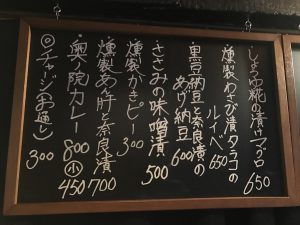 しょうゆ糀の漬けマグロ 650
燻製わさび漬タラコの
ルイベ 650
黒豆納豆と奈良漬の
あげ納豆 600
ささみの味噌漬 500
燻製かきピー 300
燻製あん肝と奈良漬 700
奥の院カレー 800 小450
◎チャージ(お通し) 300